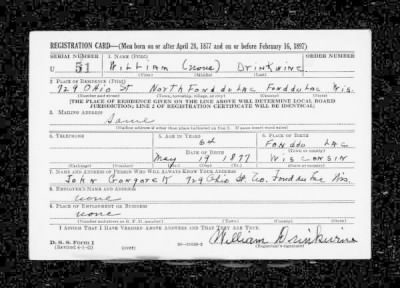 REGISTRATION CARD—(Men born on or after April 28, 1877 and on or before February 16, 1897)
SERIAL NUMBER 1. NAME (Print) ORDER NUMBER
U 51 WILLIAM (none) Drinkwine
(First) (Middle) (Last)
2. PLACE OF RESIDENCE (Print)
729 Ohio St North Fond du Lac Fond du Lac Wis.
(Number and street) (Town, township, village, or city) (County) (State)
[THE PLACE OF RESIDENCE GIVEN ON THE LINE ABOVE WILL DETERMINE LOCAL BOARD
JURISDICTION; LINE 2 OF REGISTRATION CERTIFICATE WILL BE IDENTICAL]
3. MAILING ADDRESS
Same
[Mailing address if other than place indicated on line 2. If same insert word same]
4. TELEPHONE 5. AGE IN YEARS 6. PLACE OF BIRTH
64 Fondu Lac
DATE OF BIRTH (Town or county)
May 19 1877 Wisconsin
(Exchange) (Number) (Mo.) (Day) (Yr.) (State or country)
7. NAME AND ADDRESS OF PERSON WHO WILL ALWAYS KNOW YOUR ADDRESS
John 729 Ohio St No. Fond du Lac Wis.
8. EMPLOYER'S NAME AND ADDRESS
none
9. PLACE OF EMPLOYMENT OR BUSINESS
none
(Number and street or R. F. D. number) (Town) (County) (State)
I AFFIRM THAT I HAVE VERIFIED ABOVE ANSWERS AND THAT THEY ARE TRUE.
D. S. S. Form 1
(Revised 4-1-42) (over) William Drinkwine
(Registrant's signature)